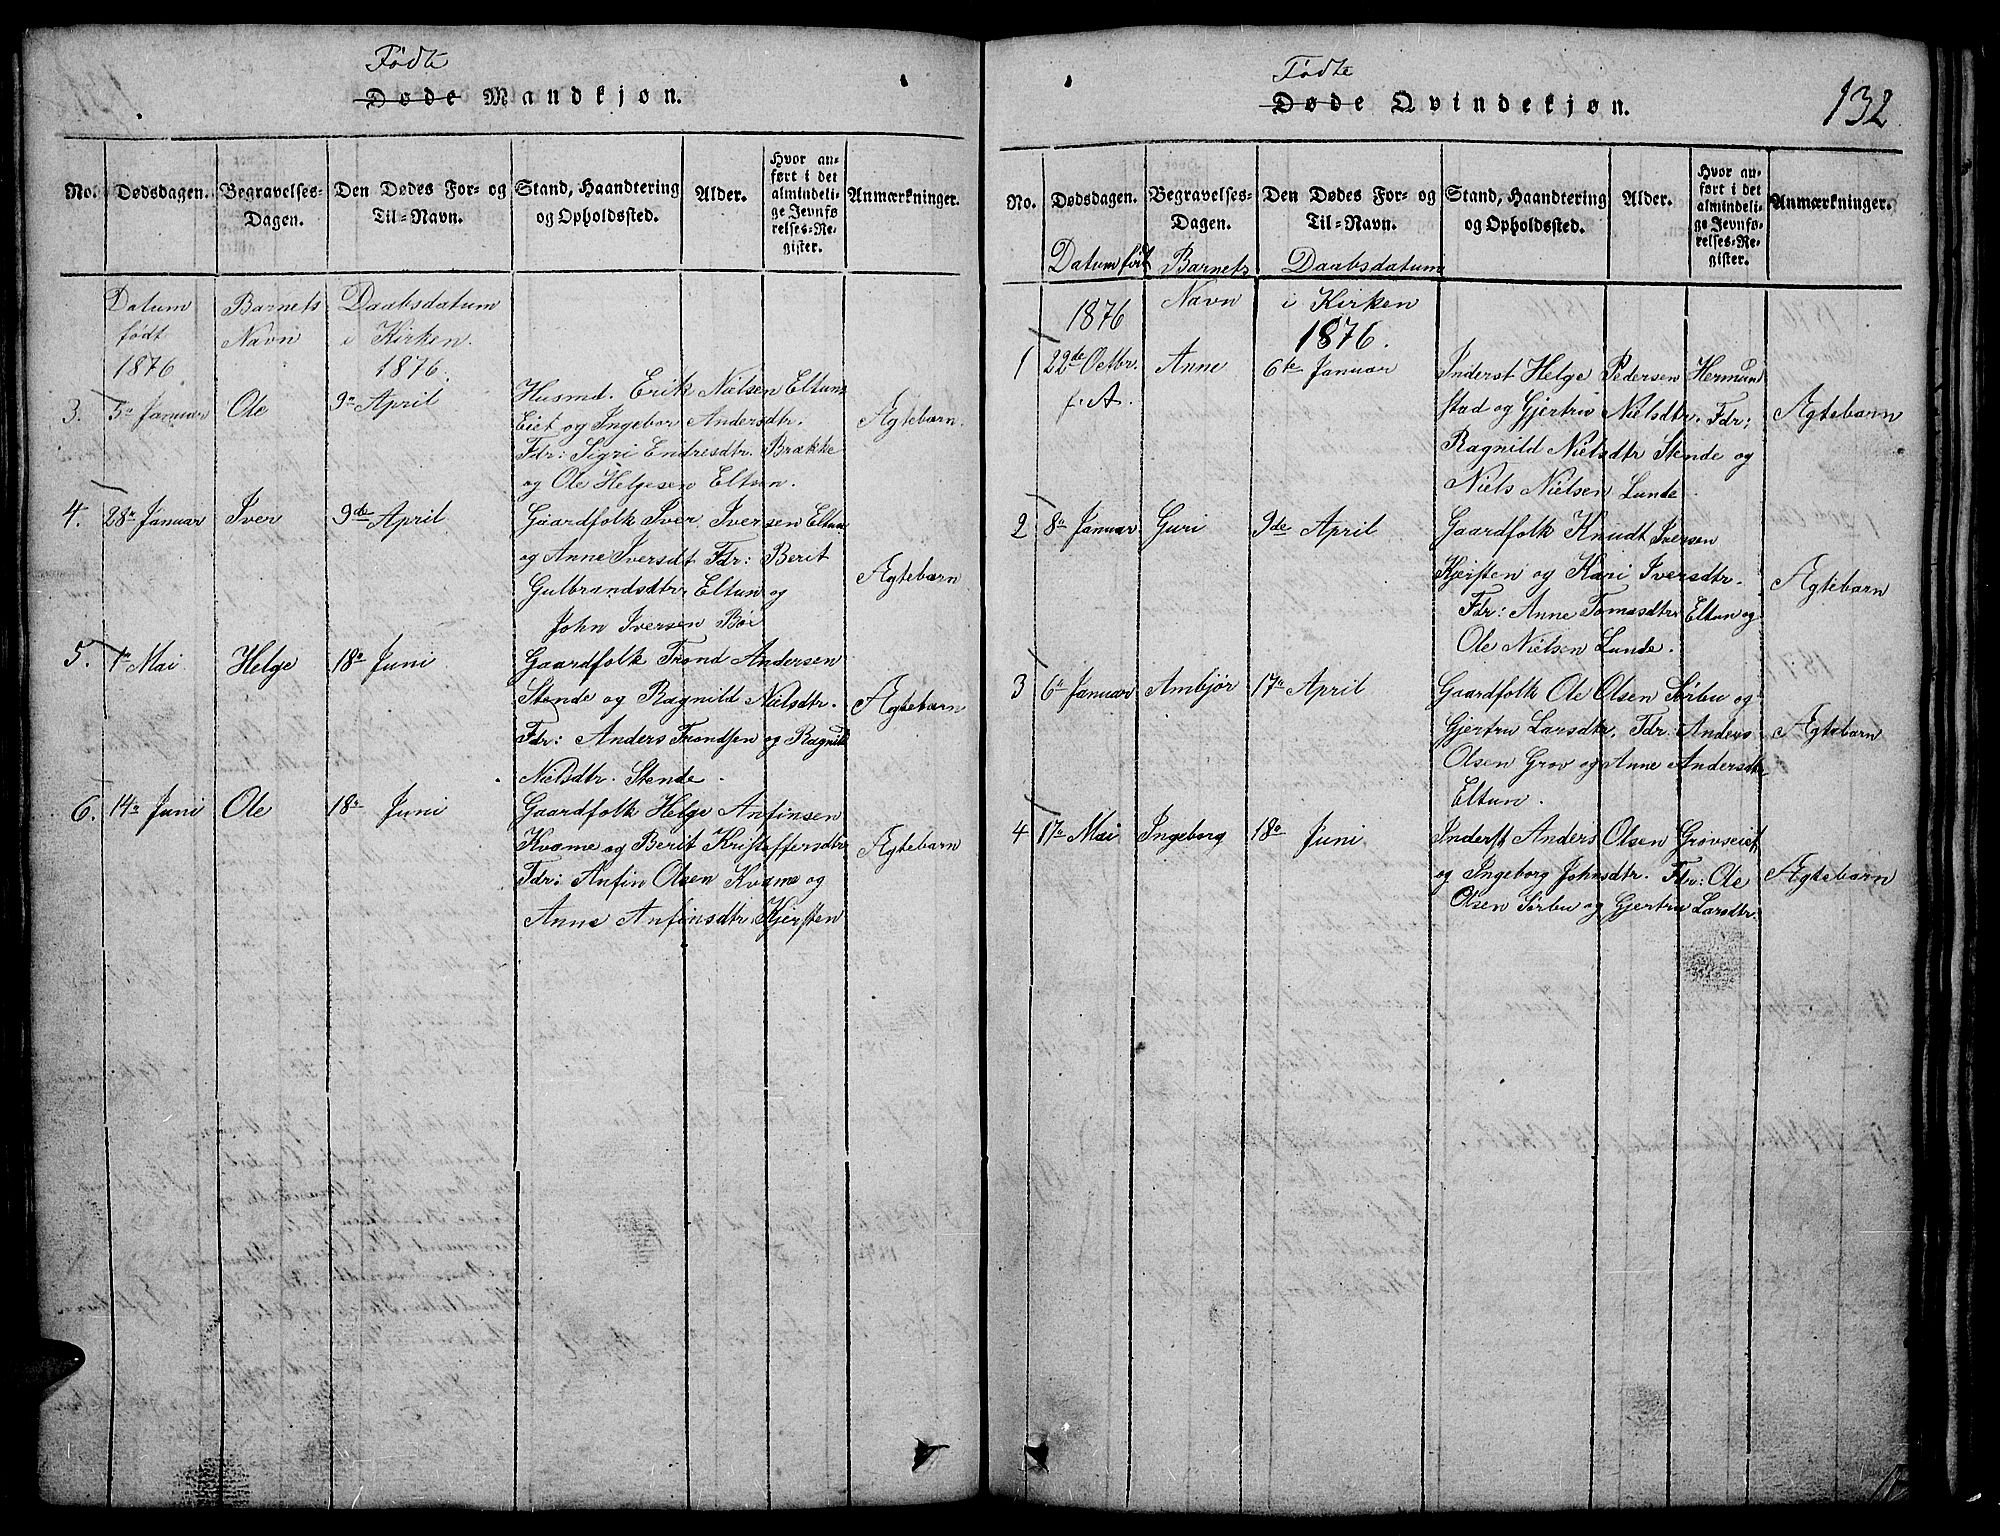 Fødte
Døde Mandkjøn.
No. Dødsdagen. Begravelses-Dagen. Den Dødes For- og Til-Navn. Stand, Haandtering og Opholdssted. Alder. Hvor anført i det almindelige Jevnførelses-Register. Anmærkninger.
Datum Barnets Daabsdatum
født Navn i Kirken.
1876 1876.
3. 5te Januar Ole 9de April Husmd. Erik Nielsen Eltuns
Eiet og Ingebor Andersdtr. Ægtebarn.
Fdr: Sigri Endresdtr. Brække
og Ole Helgesen Eltun.
4. 28de Januar Iver 9de April Gaardfolk Iver Iversen Eltun
og Anne Iversdt Fdr: Berit
Gulbrandsdtr. Eltun og Ægtebarn
John Iversen Bør
5. 1te Mai Helge 18de Juni Gaardfolk Trond Andersen
Stende og Ragnild Nielsdtr. Ægtebarn
Fdr: Anders Trondsen og Ragnild
Nielsdtr. Stende.
6. 14de Juni Ole 18de Juni Gaardfolk Helge Anfinsen
Kvame og Berit Kristoffersdtr. Ægtebarn
Fdr: Anfin Olsen Kvame og
Anne Anfinsdtr. Kjersten
Fødte
Døde Qvindekjøn.
132
No. Dødsdagen. Begravelses-Dagen. Den Dødes For- og Til-Navn. Stand, Haandtering og Opholdssted. Alder. Hvor anført i det almindelige Jevnførelses-Register. Anmærkninger.
Datum født Barnets Daabsdatum
1876 Navn i Kirken
1876.
1 22de Octbr. Anne 6te Januar Inderst Helge Pedersen Hermund
f. A. stad og Gjertru Nielsdtr. Fdr: Ægtebarn
Ragnild Nielsdtr Stende og
Niels Nielsen Lunde.
2 8de Januar Guri 9de April Gaardfolk Knudt Iversen
Kjersten og Kari Iversdtr. Ægtebarn
Fdr: Anne Tomasdtr Eltun og
Ole Nielsen Lunde.
3 6te Januar Ambjør 17de April Gaardfolk Ole Olsen Sørbu og
Gjertru Larsdtr. Fdr. Anders Ægtebarn
Olsen Grov og Anne Andersdtr
Eltun.
4 17de Mai Ingeborg 18de Juni Inderst Anders Olsen Grovseiet
og Ingeborg Johnsdtr. Fdr: Ole Ægtebarn
Olsen Sørbu og Gjertru Larsdtr.